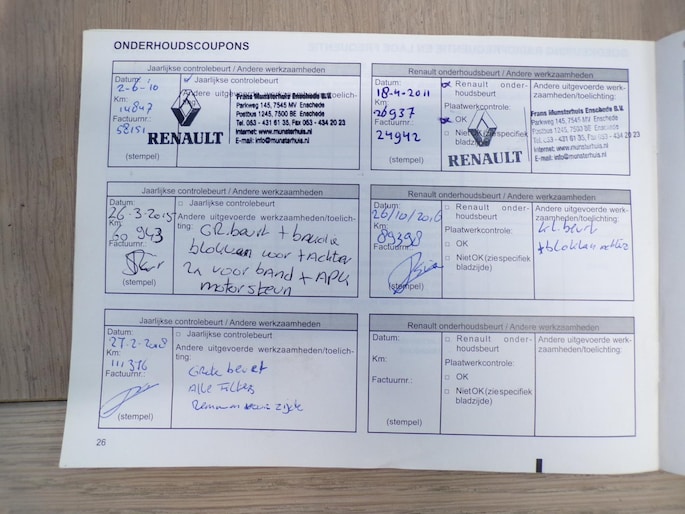 ONDERHOUDSCOUPONS
Jaarlijkse controlebeurt / Andere werkzaamheden
Datum:
2-6-10
Km:
14847
Factuurnr.:
58151
(stempel)
✓ Jaarlijkse controlebeurt
Andere
RENAULT
Frans Munsterhuis Enschede B.V.
Parkweg 145, 7545 MV Enschede
Postbus 1245, 7500 BE Enschede
Tel. 053 - 431 61 35, Fax 053 - 434 20 23
Internet: www.munsterhuis.nl
E-mail: info@munsterhuis.nl
Renault onderhoudsbeurt / Andere werkzaamheden
Datum:
18-4-2011
Km:
26937
Factuurnr.:
24942
(stempel)
Renault onder-
houdsbeurt
Plaatwerkcontrole:
OK
Niet OK (zie specifiek
bladzijde)
Andere uitgevoerde werk-
zaamheden/toelichting:
RENAULT
Frans Munsterhuis Enschede B.V.
Parkweg 145, 7545 MV Enschede
Postbus 1245, 7500 BE Enschede
Tel. 053 - 431 61 35, Fax 053 - 434 20 23
Internet: www.munsterhuis.nl
E-mail: info@munsterhuis.nl
Jaarlijkse controlebeurt / Andere werkzaamheden
Datum:
26-3-2015
Km:
60943
Factuurnr.:
(stempel)
□ Jaarlijkse controlebeurt
Andere uitgevoerde werkzaamheden/toelich-
ting:
GR. beurt +
blokken voor + Achter
2x voor band + APK
motorsteun
Renault onderhoudsbeurt / Andere werkzaamheden
Datum:
26/10/2016
Km:
89398
Factuurnr.:
(stempel)
□ Renault onder-
houdsbeurt
Plaatwerkcontrole:
□ OK
□ Niet OK (zie specifiek
bladzijde)
Andere uitgevoerde werk-
zaamheden/toelichting:
kl. beurt
+ blokken achter
Jaarlijkse controlebeurt / Andere werkzaamheden
Datum:
27-2-2018
Km:
111376
Factuurnr.:
(stempel)
□ Jaarlijkse controlebeurt
Andere uitgevoerde werkzaamheden/toelich-
ting:
Grote beurt
Alle Filters
Renault onderhoudsbeurt / Andere werkzaamheden
Datum:
Km:
Factuurnr.:
(stempel)
□ Renault onder-
houdsbeurt
Plaatwerkcontrole:
□ OK
□ Niet OK (zie specifiek
bladzijde)
Andere uitgevoerde werk-
zaamheden/toelichting:
26